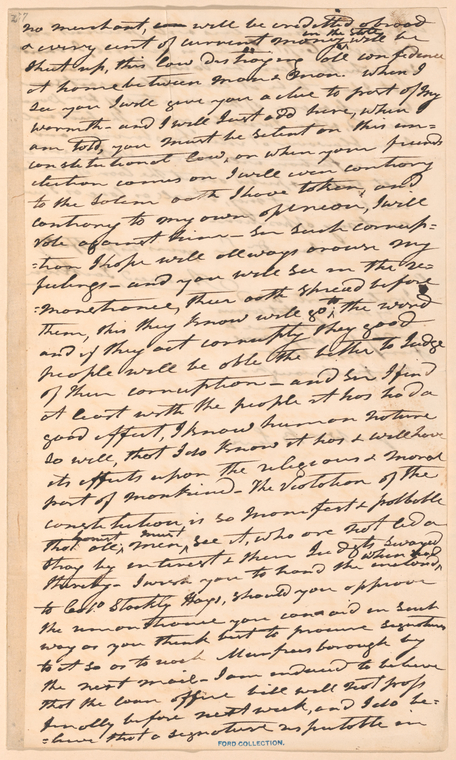 27
no merchant, will be credited abroad
in the State
& every cent of current money will be
shut up, this low destroying all confidence
at home between man & man. When I
see you I will give you a clue to part of my
warmth - and I will Just add here, when I
am told, you must be silent on this un=
constitutional law, or when your friends
election comes on I will even contrary
to the solem oath I have taken, and
contrary to my own openion, I will
vote against him - Sir such corrup=
=tion I hope will allways arouse my
feelings - and you will see in the re=
=monstrance, their oath spread before
them, this they know will go to the world
and if they act corruptly they good
people will be able the better to Judge
of their corruption - and Sir I find
at least with the people it has had a
good effect, I know human nature
so well, that I do know it has & will have
its effects upon the religious & moral
part of mankind - The violation of the
constitution, is so manifest & palpable
honest must
that all men see it, who are not led a
stray by interest & their Judgts swayed
thereby - I wish you to hand the enclosed, when read,
to Colo. Stockly Hays, should you approve
the remonstrance you can aid in such
way as you think best to procure signatures
to it so as to reach Murfreesborough by
the next mail - I am endured to believe
that the loan office bill will not pass
finally before next week, and I do be=
=lieve that a signature respectable in
FORD COLLECTION.